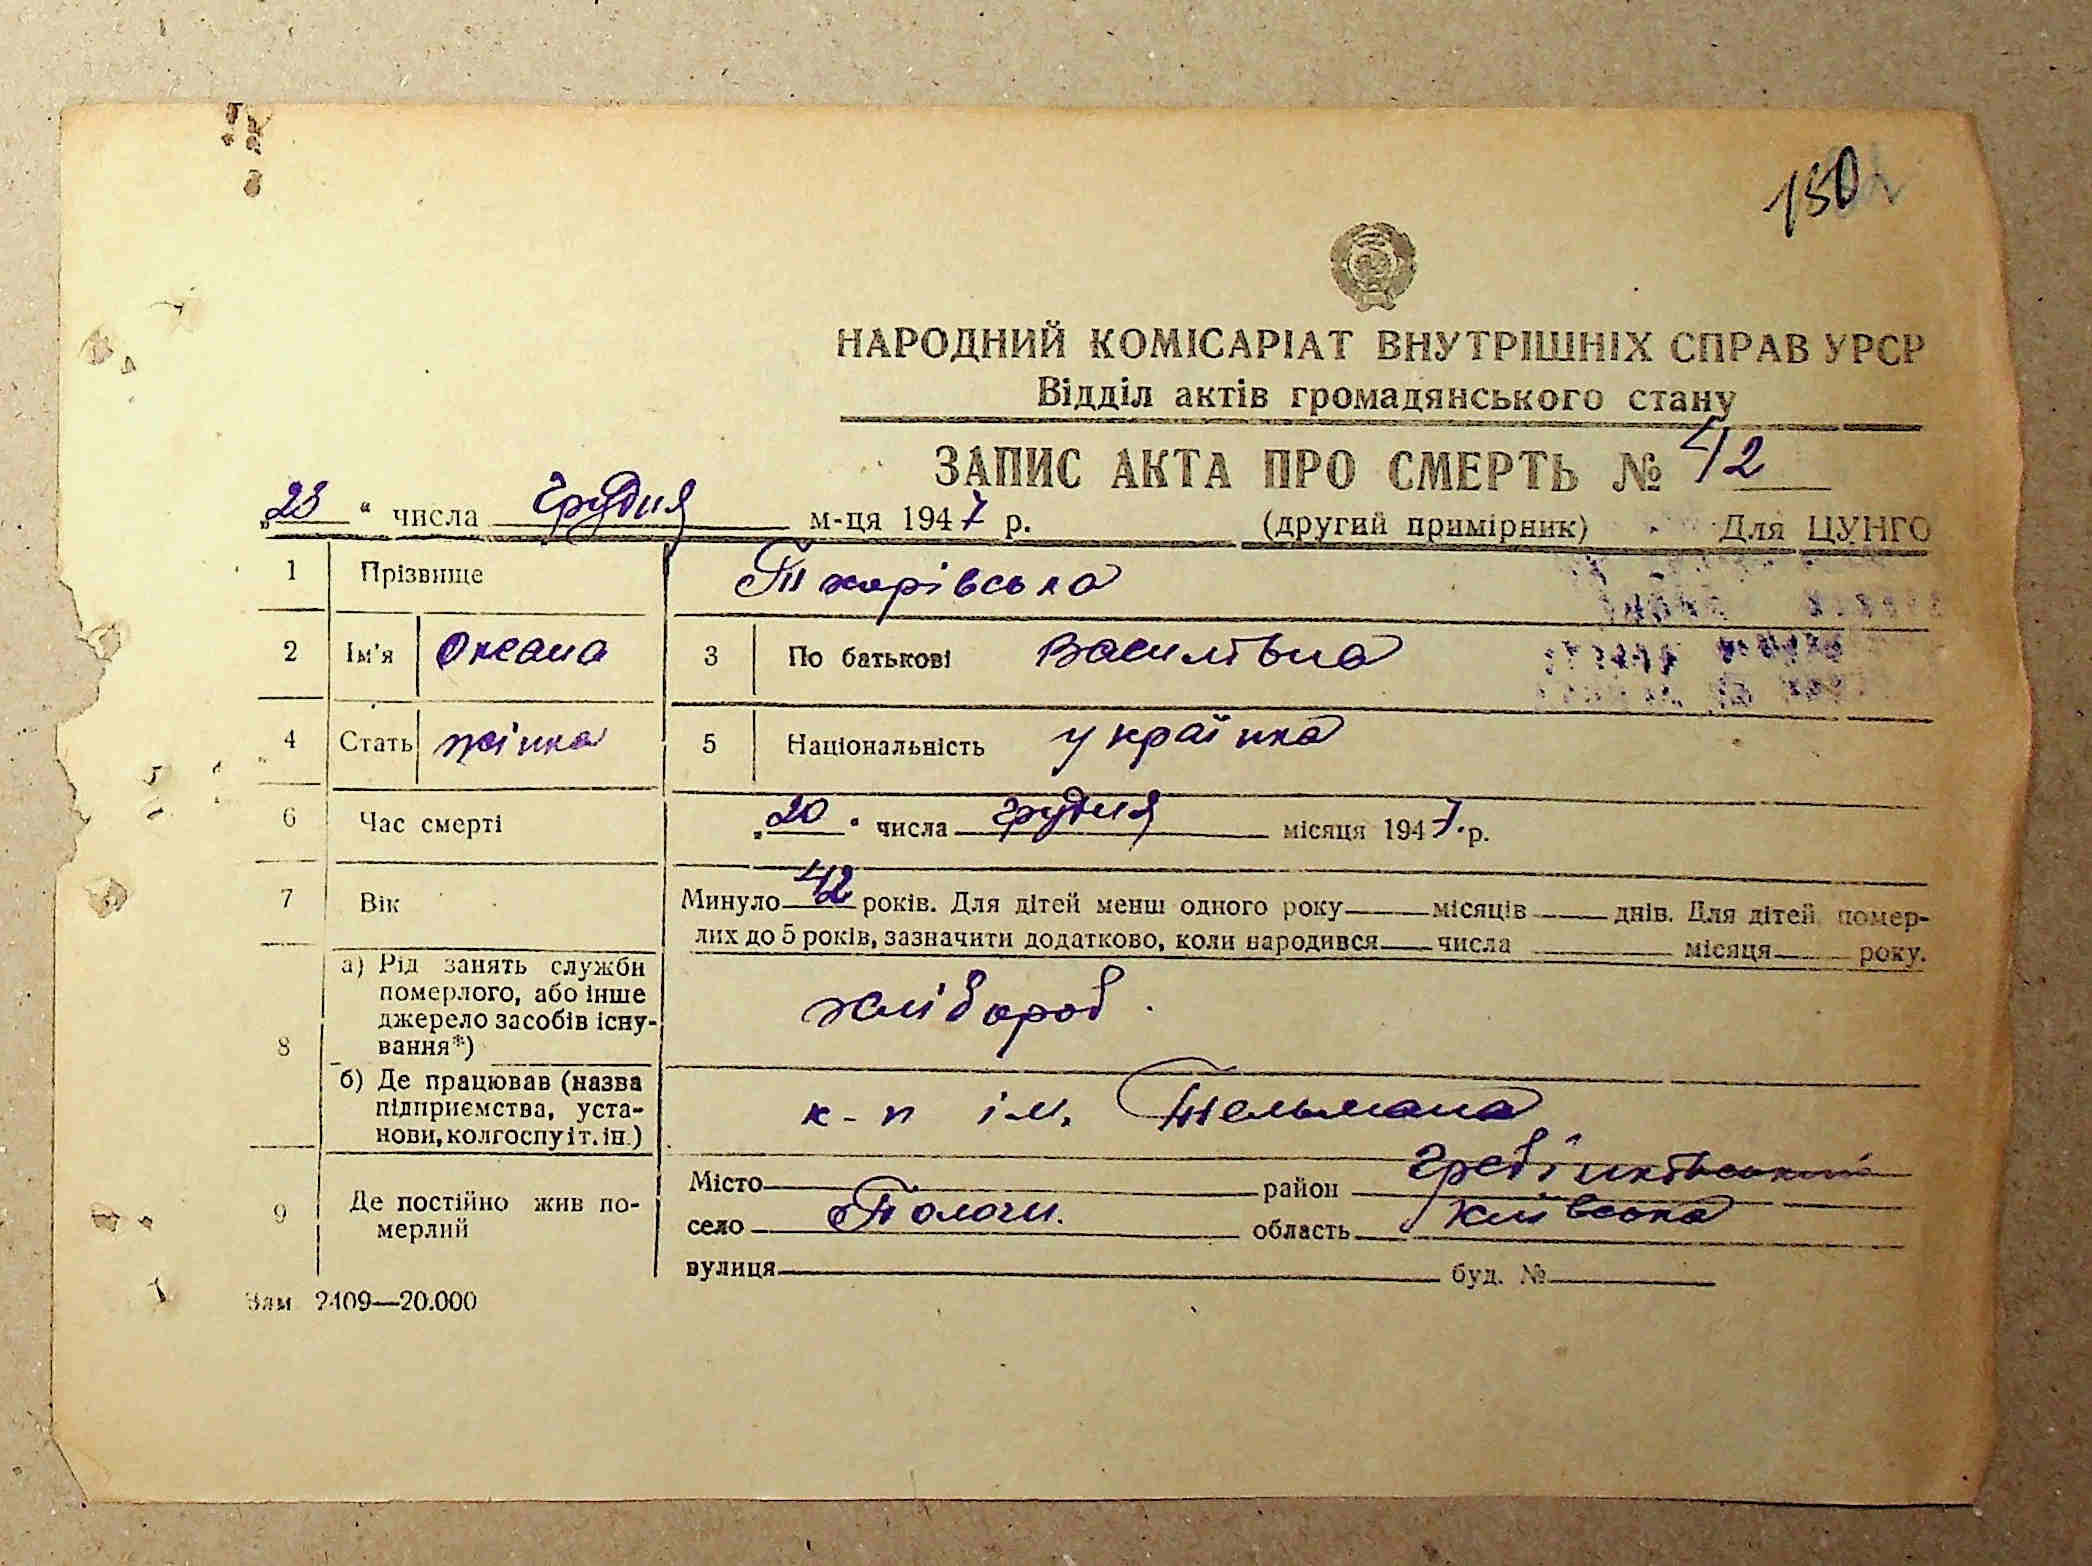 150
НАРОДНИЙ КОМІСАРІАТ ВНУТРІШНІХ СПРАВ УРСР
Відділ актів громадянського стану
ЗАПИС АКТА ПРО СМЕРТЬ № 42
„23“ числа Грудня м-ця 1947 р. (другий примірник) Для ЦУНГО
1 Прізвище
2 Ім'я Оксана 3 По батькові Василівна
4 Стать жінка 5 Національність українка
6 Час смерті „20“ числа Грудня місяця 1947 р.
7 Вік Минуло 42 років. Для дітей менш одного року місяців днів. Для дітей помер-
лих до 5 років, зазначити додатково, коли народився числа місяця року.
8 а) Рід занять служби
померлого, або інше
джерело засобів існу-
вання*)
хлібороб
б) Де працював (назва
підприємства, уста-
нови, колгоспу і т. ін.)
к-п ім. Тельмана
9 Де постійно жив по-
мерлий
Місто район Гребінківський
село Пологи область Київська
вулиця буд. №
Зам 2409—20.000